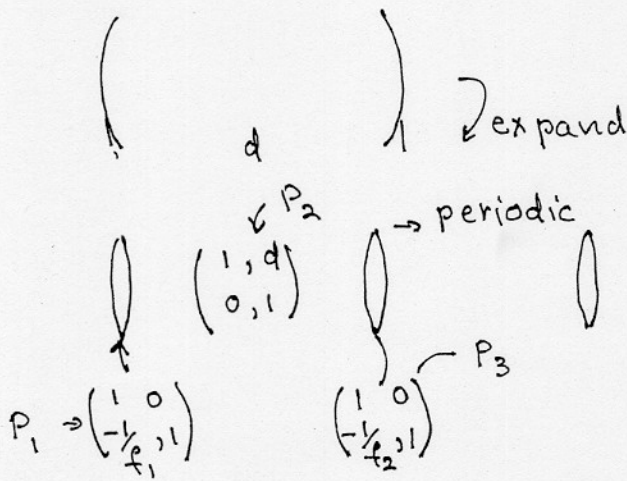 expand
d
P2
→ periodic
( 1 , d )
( 0 , 1 )
P3
P1 → ( 1 0 )
( -1/f1 , 1 )
( 1 0 )
( -1/f2 , 1 )